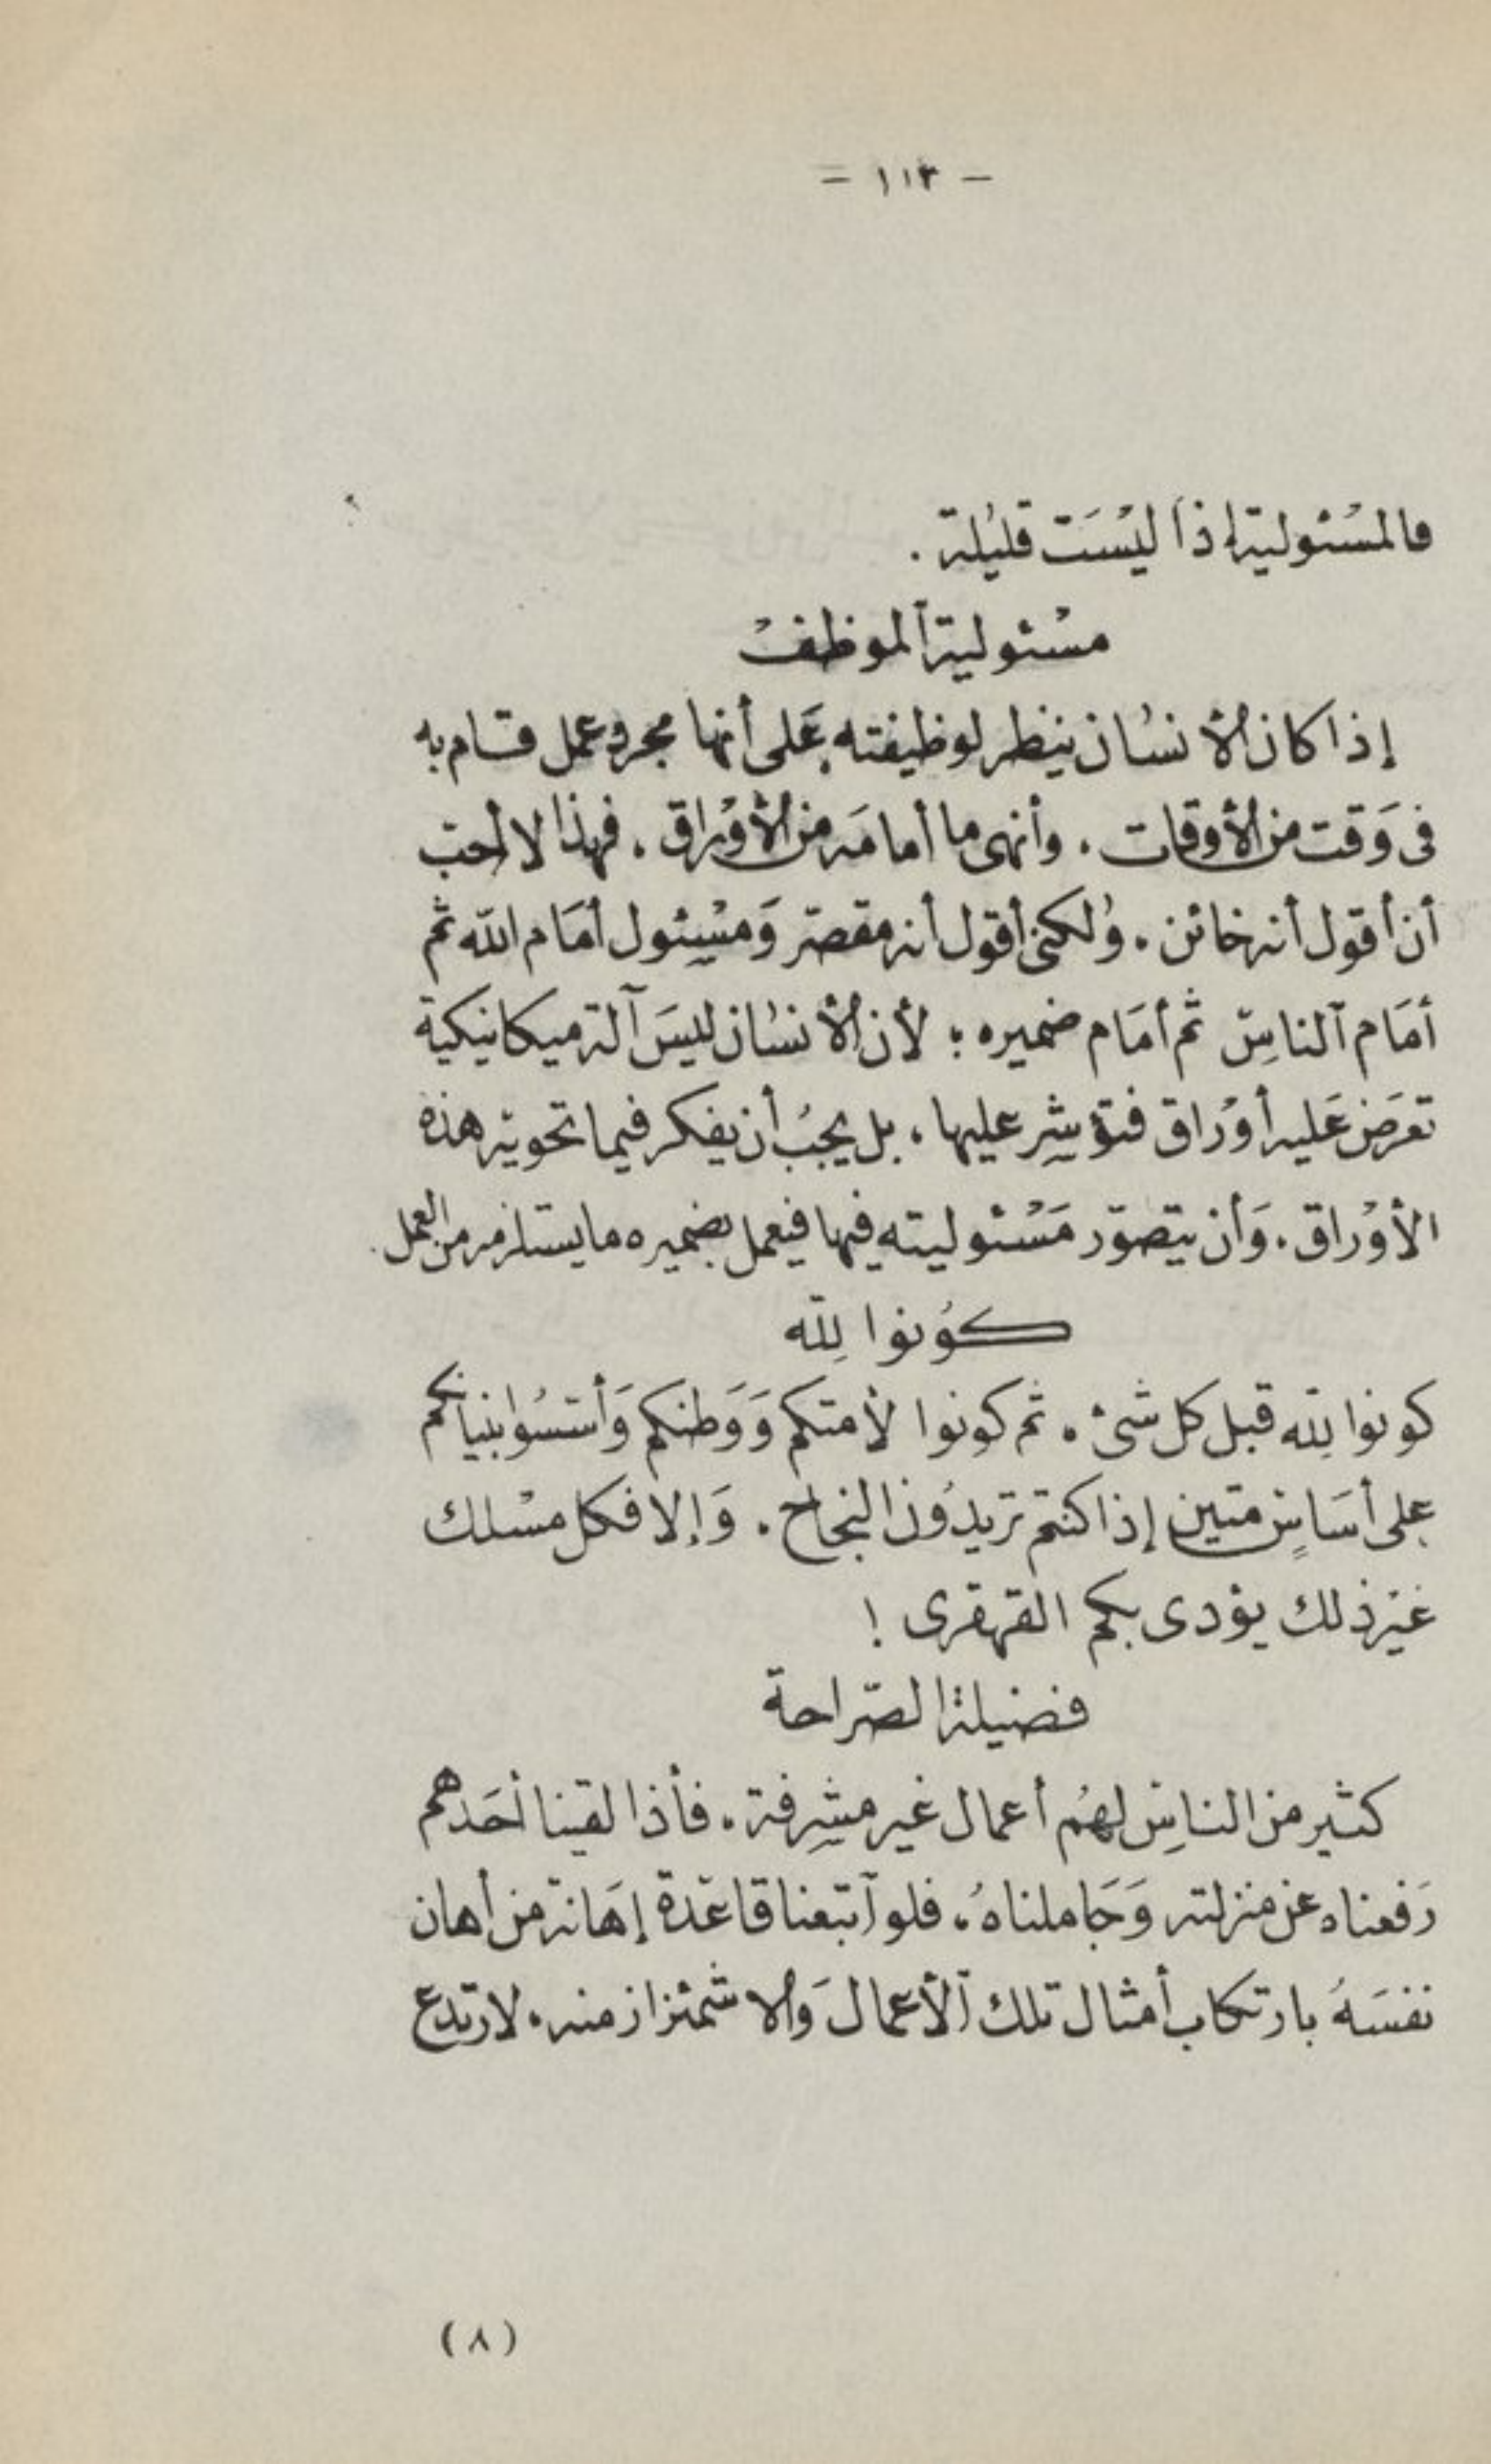 - ١١٣ -
فالمسئولية إذاً ليست قليلة .
مسئولية الموظف
إذا كان الأنسان ينظر لوظيفته على أنها مجرد عمل قام به
فى وقت من الأوقات ، وأنهى ما أمامه من الأوراق ، فهذا لا أحب
أن أقول أنه خائن ، ولكنى أقول أنه مقصر ومسئول أمام الله ثم
أمام الناس ثم أمام ضميره ؛ لأن الأنسان ليس آلة ميكانيكية
تعرض عليه أوراق فتؤشر عليها ، بل يجب أن يفكر فيما تحويه هذه
الأوراق ، وأن يتصور مسئوليته فيها فيعمل بضميره ما يستلزمه من العمل .
كونوا لله
كونوا لله قبل كل شئ ، ثم كونوا لأمتكم ووطنكم وأسسوا بنيانكم
على أساس متين إذا كنتم تريدون النجاح ، وإلا فكل مسلك
غير ذلك يؤدى بكم القهقرى !
فضيلة الصراحة
كثير من الناس لهم أعمال غير مشرفة ، فأذا لقينا أحدهم
رفعناه عن منزلته وجاملناه ، فلو اتبعنا قاعدة إهانة من أهان
نفسه بارتكاب أمثال تلك الأعمال والاشمئزاز منه ، لارتدع
(٨)